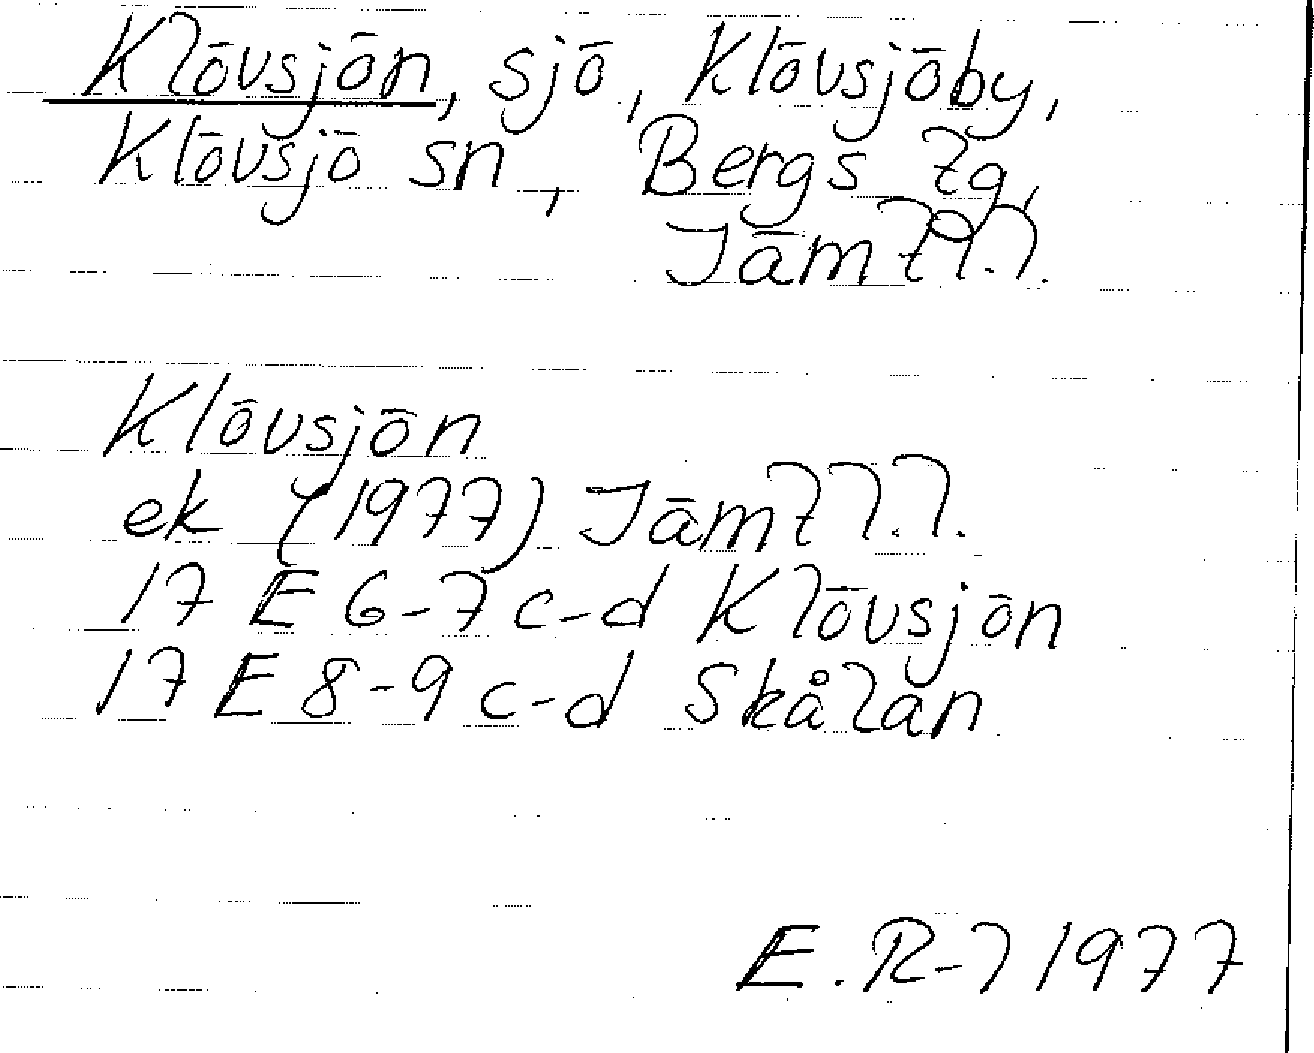 Klövsjön, sjö, Klövsjöby,
Klövsjö sn, Bergs tg,
Jämtl.l.
Klövsjön
ek (1977) Jämtl.l.
17 E 6-7 c-d Klövsjön
17 E 8-9 c-d Skålan
E.R-l 1977